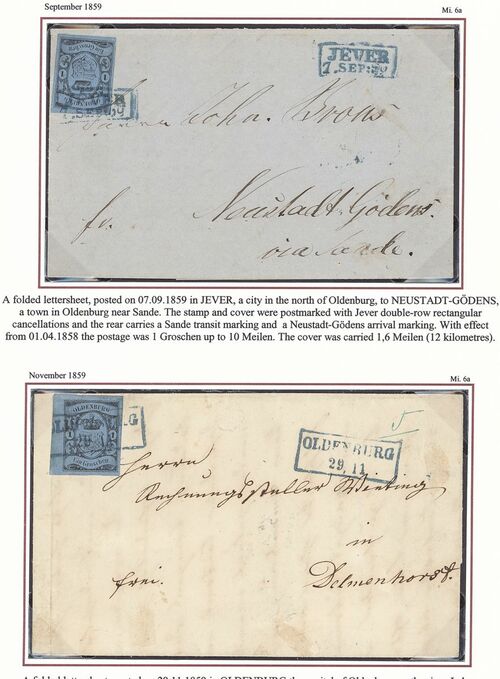 September 1859
Mi. 6a
JEVER
7. SEP: 59
Joha. Broas
fr.
Neustadt-Gödens.
via Sande.
A folded lettersheet, posted on 07.09.1859 in JEVER, a city in the north of Oldenburg, to NEUSTADT-GÖDENS,
a town in Oldenburg near Sande. The stamp and cover were postmarked with Jever double-row rectangular
cancellations and the rear carries a Sande transit marking and a Neustadt-Gödens arrival marking. With effect
from 01.04.1858 the postage was 1 Groschen up to 10 Meilen. The cover was carried 1,6 Meilen (12 kilometres).
November 1859
Mi. 6a
OLDENBURG
OLDENBURG
29. 11
Herrn
Rechnungssteller Wieting
in
frei.
Delmenhorst.